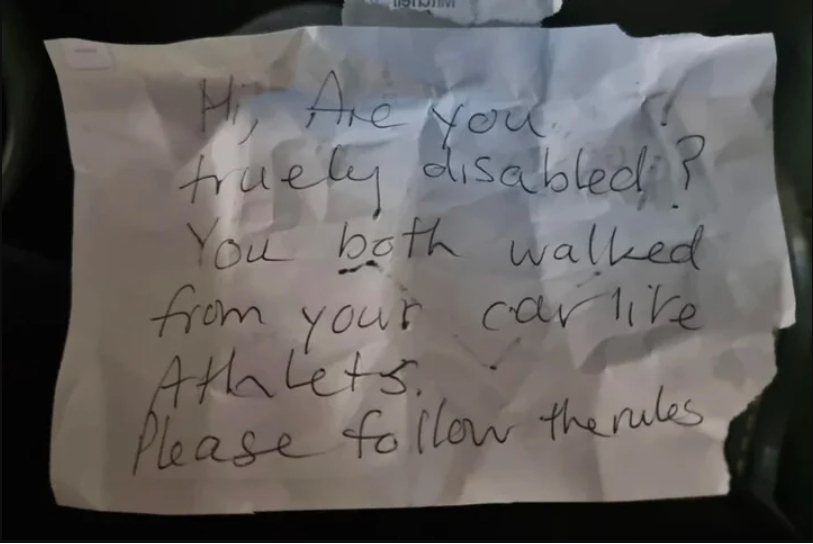 Hi, Are you
truely disabled?
You both walked
from your car like
Athlets.
Please follow the rules